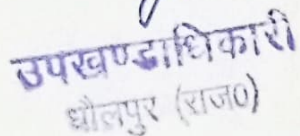 उपखण्डाधिकारी
धौलपुर (राज0)